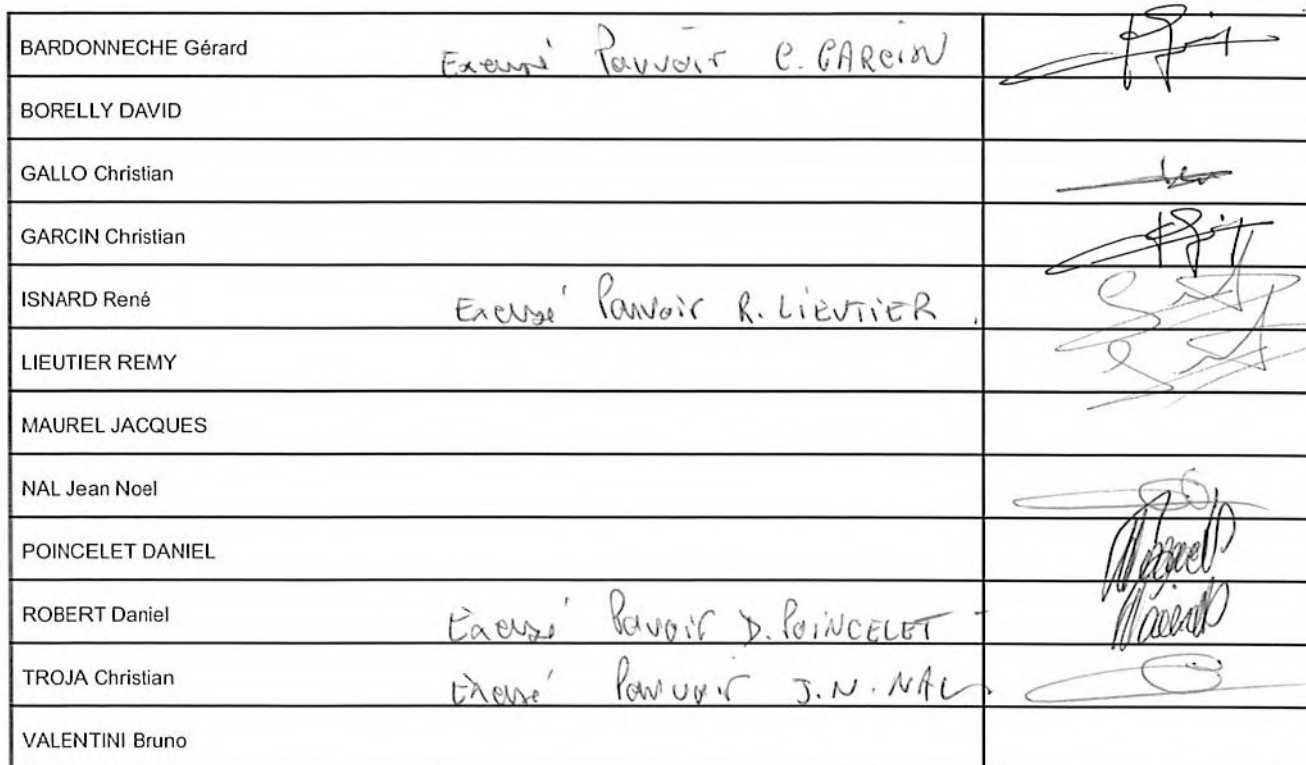 BARDONNECHE Gérard Excusé Pouvoir C. GARCIN
BORELLY DAVID
GALLO Christian
GARCIN Christian
ISNARD René Excusé Pouvoir R. LIEUTIER.
LIEUTIER REMY
MAUREL JACQUES
NAL Jean Noel
POINCELET DANIEL
ROBERT Daniel Excusé Pouvoir D. POINCELET
TROJA Christian Excusé Pouvoir J.N. NAL
VALENTINI Bruno